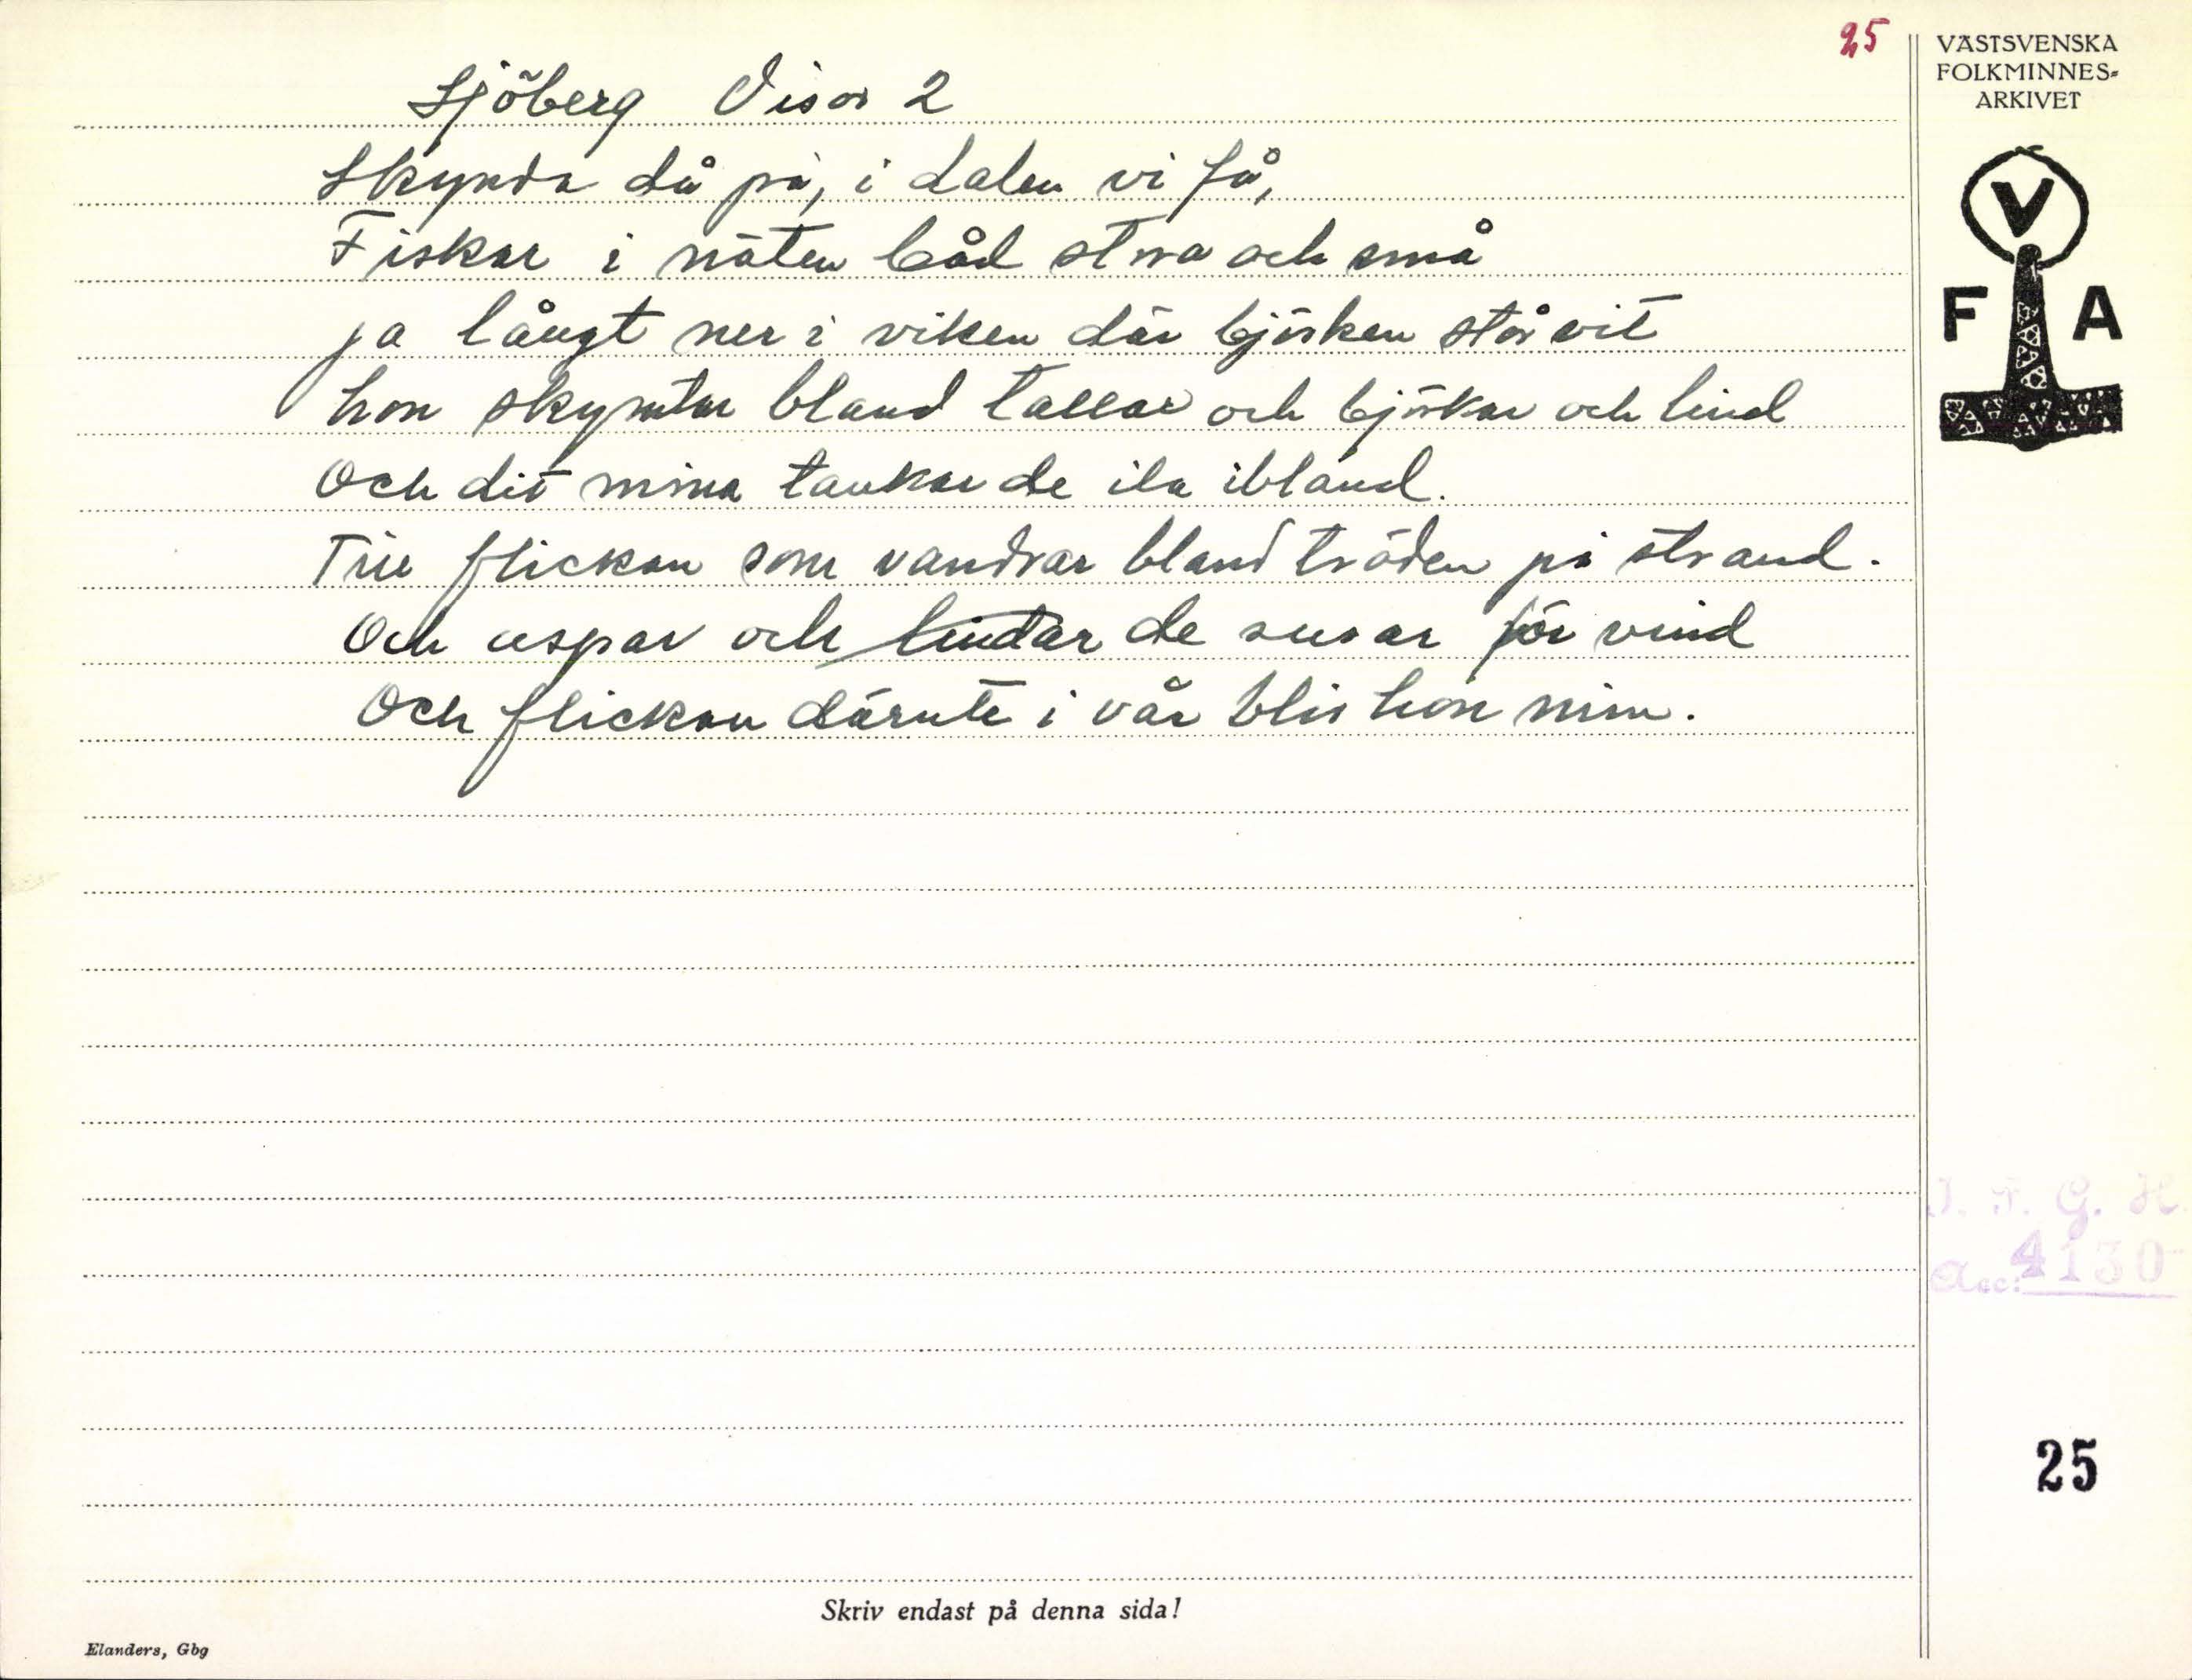 25
Sjöberg Visor 2
Skynda då på, i dalen vi få,
Fiskar i näten båd stora och små
ja långt ner i viken där björken står vit
hon skymtar bland tallar och björkar och lind
Och dit mina tankar de ila ibland.
Till flickan som vandrar bland träden på strand.
Och aspar och lindar de susar för vind
Och flickan därute i vår blir hon min.
VÄSTSVENSKA
FOLKMINNES-
ARKIVET
V
F A
I. F. G. H.
Acc: 4130
25
Skriv endast på denna sida!
Elanders, Gbg